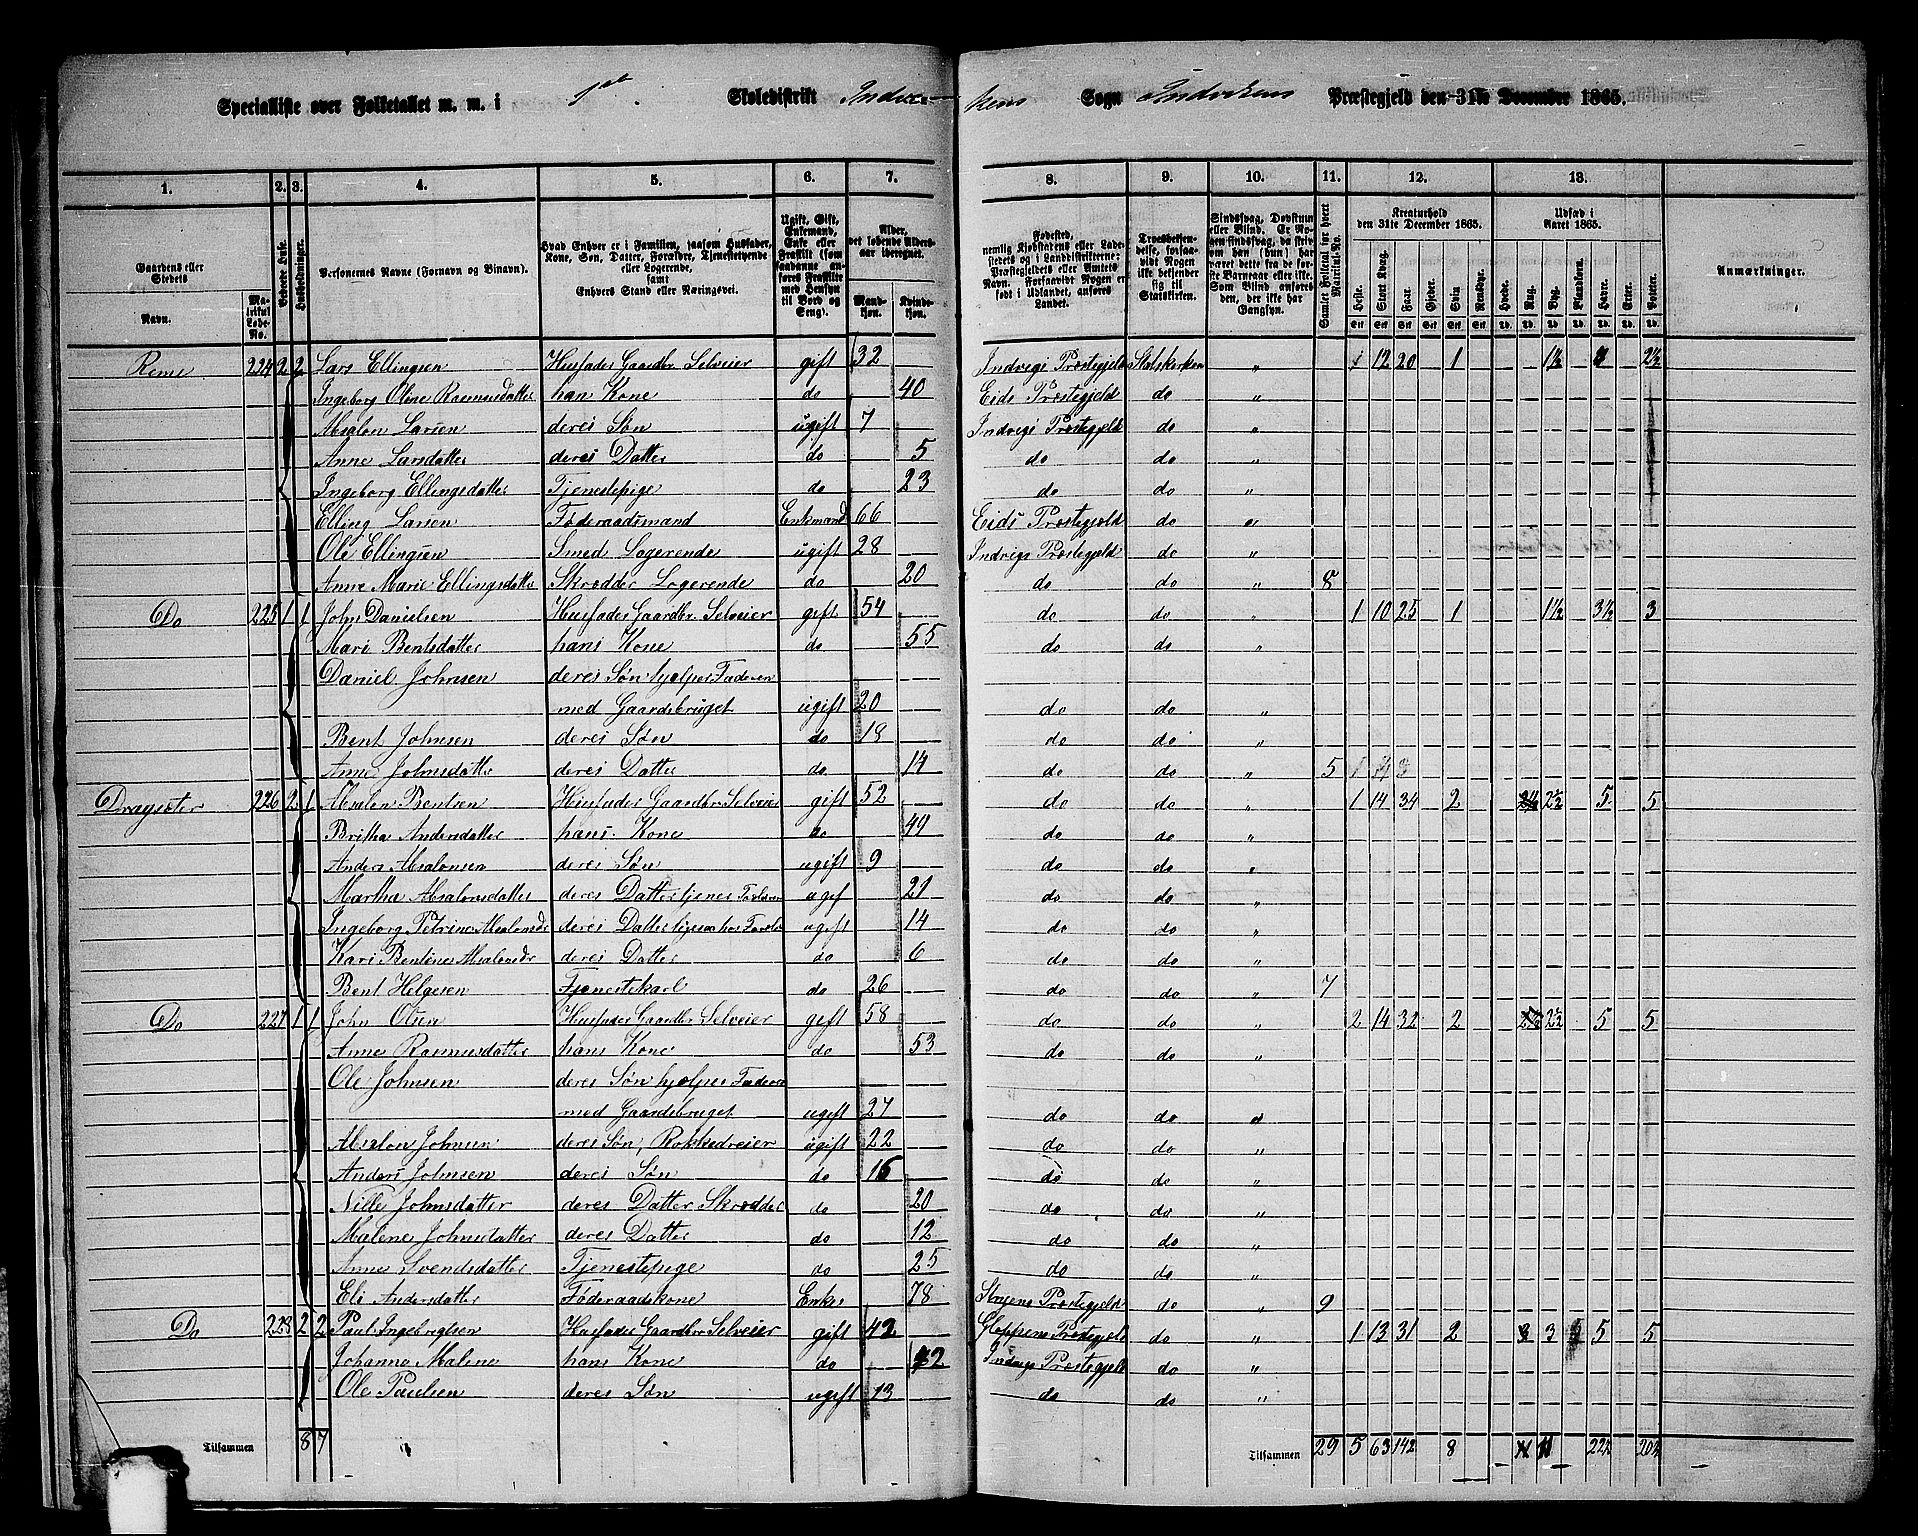 Specialliste over Folketallet m. m. i 1st Skoledistrikt Indvikens Sogn Indvikens Præstegjeld den 31te December 1865.
1. 2. 3. 4. 5. 6. 7. 8. 9. 10. 11. 12. 13.
Gaardens eller Stedets Navn. Matrikul Løbe-No. Beboede Huse. Husholdninger. Personernes Navne (Fornavn og Tilnavn). Hvad Enhver er i Familien, saasom Husfader, Kone, Søn, Datter, Forældre, Tjenestetyende eller Logerende, samt Enhvers Stand eller Næringsvei. Ugift, Gift, Enkemand, Enke eller Fraskilt (som saadanne anføres Fraskilte med Hensyn til Bord og Seng). Alder, det løbende Alders-aar iberegnet. Mandkjøn. Kvindekjøn.
Fødested, nemlig Kjøbstadens eller Ladestedets og i Landdistrikterne: Præstegjeldets eller Amtets Navn. Forsaavidt Nogen er født i Udlandet, anføres Landet. Troesbekjendelse, forsaavidt Nogen ikke bekjender sig til Statskirken. Sindssvag, Døvstum eller Blind. Er Nogen sindssvag, da skriv om han (hun) har været dette fra de første Barneaar eller ikke. Som Blind anføres den, der ikke har Gangsyn. Samlet Folketal for hvert Matrikul-No. Kreaturhold den 31te December 1865. Udsæd i Aaret 1865. Anmærkninger.
Heste. Stort Kvæg. Faar. Gjeder. Svin. Rensdyr. Hvede. Rug. Byg. Blandkorn. Havre. Erter. Poteter.
224 2 2 Lars Ellingsen Husfader Gaardbr. Selveier gift 32 Indvigs Præstegjeld Statskirken " 1 12 20 1 1½ 2½
Ingeborg Oline Rasmusdatter hans Kone do 40 Eids Præstegjeld do
Absalon Larsen deres Søn ugift 7 Indvigs Præstegjeld do "
Anne Larsdatter deres Datter do 5 do do "
Ingeborg Ellingsdatter Tjenestepige do 23 do do "
Elling Larsen Føderaadsmand Enkemand 66 Eids Præstegjeld do "
Ole Ellingsen Smed Logerende ugift 28 Indvigs Præstegjeld do "
Anne Marie Ellingsdatter Skrædder Logerende do 20 do do " 8
Do 225 1 1 John Danielsen Husfader Gaardbr. Selveier gift 54 do do " 1 10 25 1 1½ 3½ 3
Mari Bentsdatter hans Kone do 55 do do "
Daniel Johnsen deres Søn hjelper Faderen
med Gaardsbruget ugift 20 do do "
Bent Johnsen deres Søn do 18 do do "
Anne Johnsdatter deres Datter do 14 do do " 5
Dragseter 226 2 1 Absalon Bentsen Husfader Gaardbr. Selveier gift 52 do do " 1 14 34 2 2½ 5 5
Britha Andersdatter hans Kone do 49 do do "
Anders Absalonsen deres Søn ugift 9 do do "
Martha Absalonsdatter deres Datter tjener ugif 21 do do "
Ingeborg Petrine Absalonsdr deres Datter ugift 14 do do "
Kari Bentine Absalonsdr deres Datter do 6 do do "
Bent Helgesen Tjenestekarl do 26 do do " 7
Do 227 1 1 John Olsen Husfader Gaardbr Selveier gift 58 do do " 2 14 32 2 2½ 5 5
Anne Rasmusdatter hans Kone do 53 do do "
Ole Johnsen deres Søn hjelper Faderen
med Gaardsbruget ugift 27 do do "
Absalon Johnsen deres Søn, Rokkedreier ugift 22 do do "
Anders Johnsen deres Søn do 16 do do "
Nille Johnsdatter deres Datter Skrædder do 20 do do "
Malene Johnsdatter deres Datter do 12 do do "
Anne Svendsdatter Tjenestepige do 25 do do "
Eli Andersdatter Føderaadskone Enke 78 Præstegjeld do " 9
Do 228 2 2 Paul Ingebrigtsen Husfader Gaardbr Selveier gift 42 Gloppens Præstegjeld do " 1 13 31 2 3 5 5
Johanne Malene hans Kone do Indvigs Præstegjeld do "
Ole Paulsen deres Søn ugift 13 do do "
Tilsammen 8 7 Tilsammen 29 5 63 142 8 11